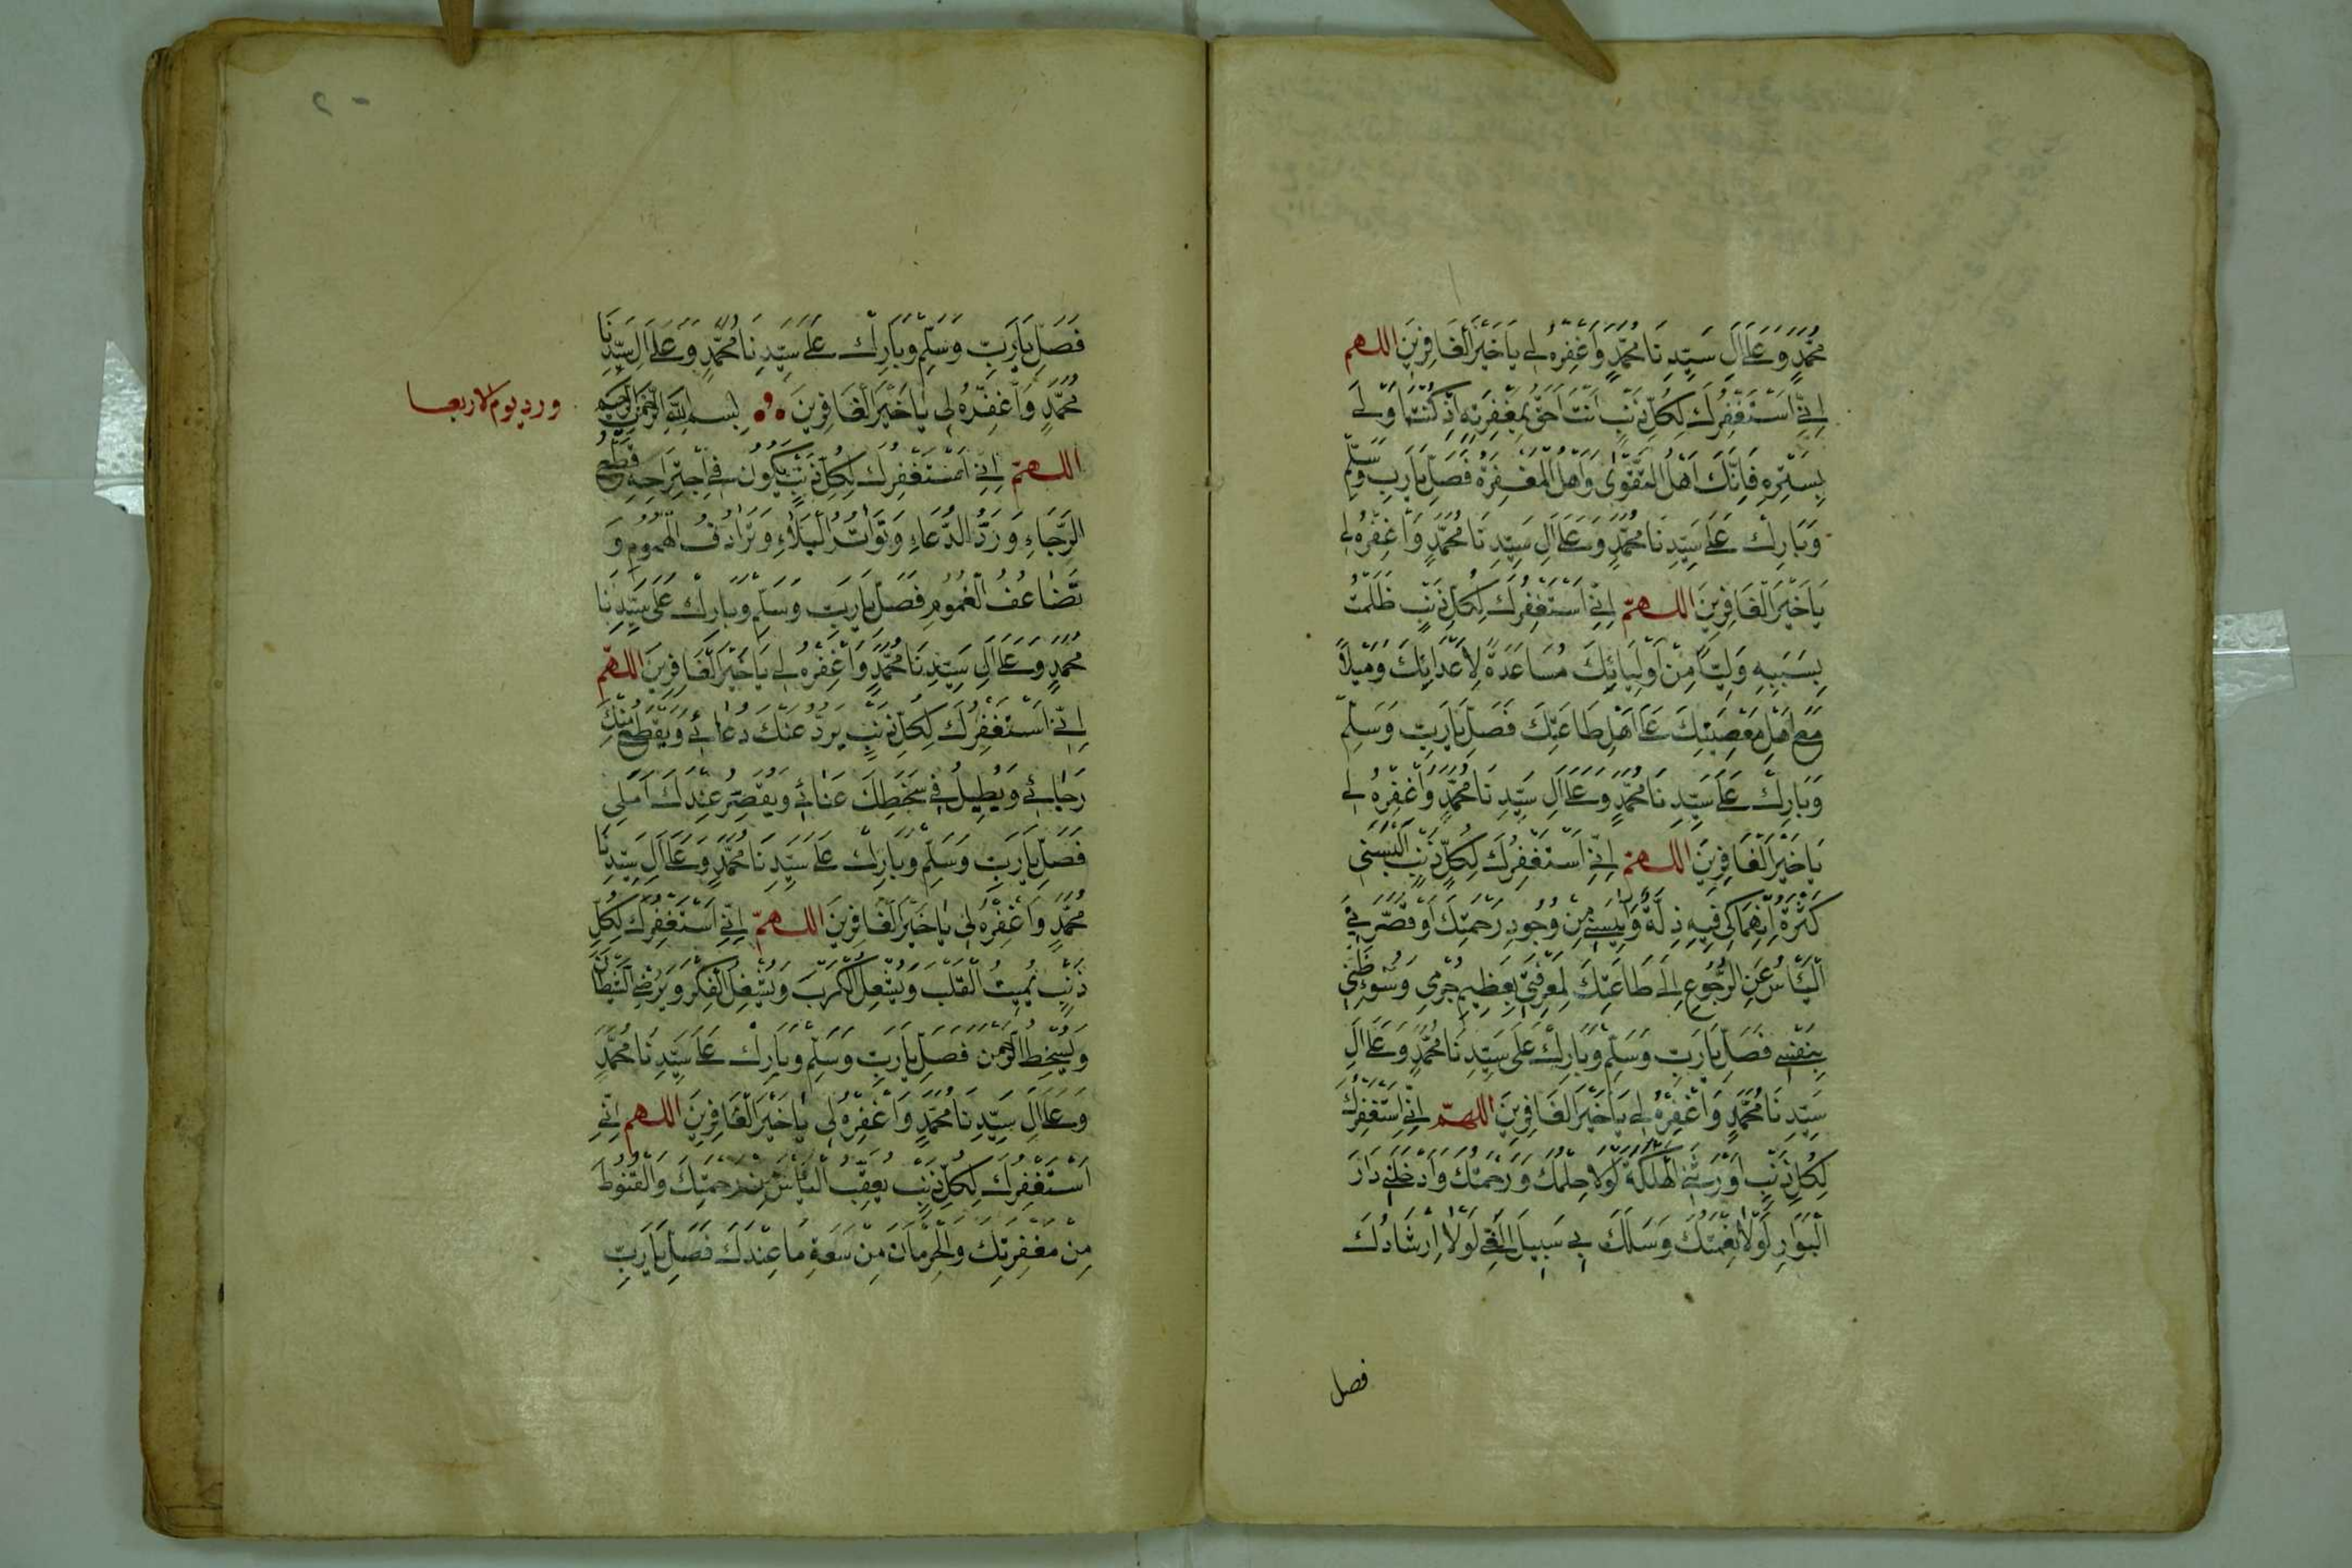 مُحَمَّدٍ وَعَلَى آلِ سَيِّدِنَا مُحَمَّدٍ وَاغْفِرْهُ لِي يَا خَيْرَ الْغَافِرِينَ اللهم
اِنِّي اَسْتَغْفِرُكَ لِكُلِّ ذَنْبٍ اَنْتَ اَحَقُّ بِمَغْفِرَتِهِ اِذْ كُنْتَ اَوْلَى
بِسَتْرِهِ فَاِنَّكَ اَهْلُ التَّقْوٰى وَاَهْلُ الْمَغْفِرَةِ فَصَلِّ يَا رَبِّ وَسَلِّمْ
وَبَارِكْ عَلَى سَيِّدِنَا مُحَمَّدٍ وَعَلَى آلِ سَيِّدِنَا مُحَمَّدٍ وَاغْفِرْهُ لِي
يَا خَيْرَ الْغَافِرِينَ اللهمّ اِنِّي اَسْتَغْفِرُكَ لِكُلِّ ذَنْبٍ ظَلَمْتُ
بِسَبَبِهِ وَلِيًّا مِنْ اَوْلِيَائِكَ مُسَاعَدَةً لِاَعْدَائِكَ وَمَيْلًا
مَعَ اَهْلِ مَعْصِيَتِكَ عَلَى اَهْلِ طَاعَتِكَ فَصَلِّ يَا رَبِّ وَسَلِّمْ
وَبَارِكْ عَلَى سَيِّدِنَا مُحَمَّدٍ وَعَلَى آلِ سَيِّدِنَا مُحَمَّدٍ وَاغْفِرْهُ لِي
يَا خَيْرَ الْغَافِرِينَ اللهمّ اِنِّي اَسْتَغْفِرُكَ لِكُلِّ ذَنْبٍ اَلْبَسَنِي
كَثْرَةُ اِنْهِمَاكِي فِيهِ ذِلَّةً وَاَيْيَسَنِي مِنْ وُجُودِ رَحْمَتِكَ اَوْ قَصَّرَ بِيَ
الْيَاْسُ عَنِ الرُّجُوعِ اِلَى طَاعَتِكَ لِمَعْرِفَتِي بِعَظِيمِ جُرْمِي وَسُوءِ ظَنِّي
بِنَفْسِي فَصَلِّ يَا رَبِّ وَسَلِّمْ وَبَارِكْ عَلَى سَيِّدِنَا مُحَمَّدٍ وَعَلَى آلِ
سَيِّدِنَا مُحَمَّدٍ وَاغْفِرْهُ لِي يَا خَيْرَ الْغَافِرِينَ اللهمّ اِنِّي اَسْتَغْفِرُكَ
لِكُلِّ ذَنْبٍ اَوْرَثَنِي الْهَلَكَةَ لَوْلَا حِلْمُكَ وَرَحْمَتُكَ وَاَدْخَلَنِي دَارَ
الْبَوَارِ لَوْلَا نِعْمَتُكَ وَسَلَكَ بِي سَبِيلَ الْغَيِّ لَوْلَا اِرْشَادُكَ
فصل
فَصَلِّ يَا رَبِّ وَسَلِّمْ وَبَارِكْ عَلَى سَيِّدِنَا مُحَمَّدٍ وَعَلَى آلِ سَيِّدِنَا
مُحَمَّدٍ وَاغْفِرْهُ لِي يَا خَيْرَ الْغَافِرِينَ بِسْمِ اللّٰهِ الرَّحْمٰنِ الرَّحِيمِ
ورد يوم الاربعا
اللهمّ اِنِّي اَسْتَغْفِرُكَ لِكُلِّ ذَنْبٍ يَكُونُ فِي اجْتِرَاحِهِ قَطْعُ
الرَّجَاءِ وَرَدُّ الدُّعَاءِ وَتَوَاتُرُ الْبَلَاءِ وَتَرَادُفُ الْهُمُومِ وَ
تَضَاعُفُ الْغُمُومِ فَصَلِّ يَا رَبِّ وَسَلِّمْ وَبَارِكْ عَلَى سَيِّدِنَا
مُحَمَّدٍ وَعَلَى آلِ سَيِّدِنَا مُحَمَّدٍ وَاغْفِرْهُ لِي يَا خَيْرَ الْغَافِرِينَ اللهمّ
اِنِّي اَسْتَغْفِرُكَ لِكُلِّ ذَنْبٍ يَرُدُّ عَنْكَ دُعَائِي وَيَقْطَعُ مِنْكَ
رَجَائِي وَيُطِيلُ فِي سَخَطِكَ عَنَائِي وَيُقَصِّرُ عِنْدَكَ اَمَلِي
فَصَلِّ يَا رَبِّ وَسَلِّمْ وَبَارِكْ عَلَى سَيِّدِنَا مُحَمَّدٍ وَعَلَى آلِ سَيِّدِنَا
مُحَمَّدٍ وَاغْفِرْهُ لِي يَا خَيْرَ الْغَافِرِينَ اللهمّ اِنِّي اَسْتَغْفِرُكَ لِكُلِّ
ذَنْبٍ يُمِيتُ الْقَلْبَ وَيُشْعِلُ الْكَرْبَ وَيُشْغِلُ الْفِكْرَ وَيُرْضِي الشَّيْطَانَ
وَيُسْخِطُ الرَّحْمٰنَ فَصَلِّ يَا رَبِّ وَسَلِّمْ وَبَارِكْ عَلَى سَيِّدِنَا مُحَمَّدٍ
وَعَلَى آلِ سَيِّدِنَا مُحَمَّدٍ وَاغْفِرْهُ لِي يَا خَيْرَ الْغَافِرِينَ اللهم اِنِّي
اَسْتَغْفِرُكَ لِكُلِّ ذَنْبٍ يُعَقِّبُ الْيَاْسَ مِنْ رَحْمَتِكَ وَالْقُنُوطَ
مِنْ مَغْفِرَتِكَ وَالْحِرْمَانَ مِنْ سَعَةِ مَا عِنْدَكَ فَصَلِّ يَا رَبِّ